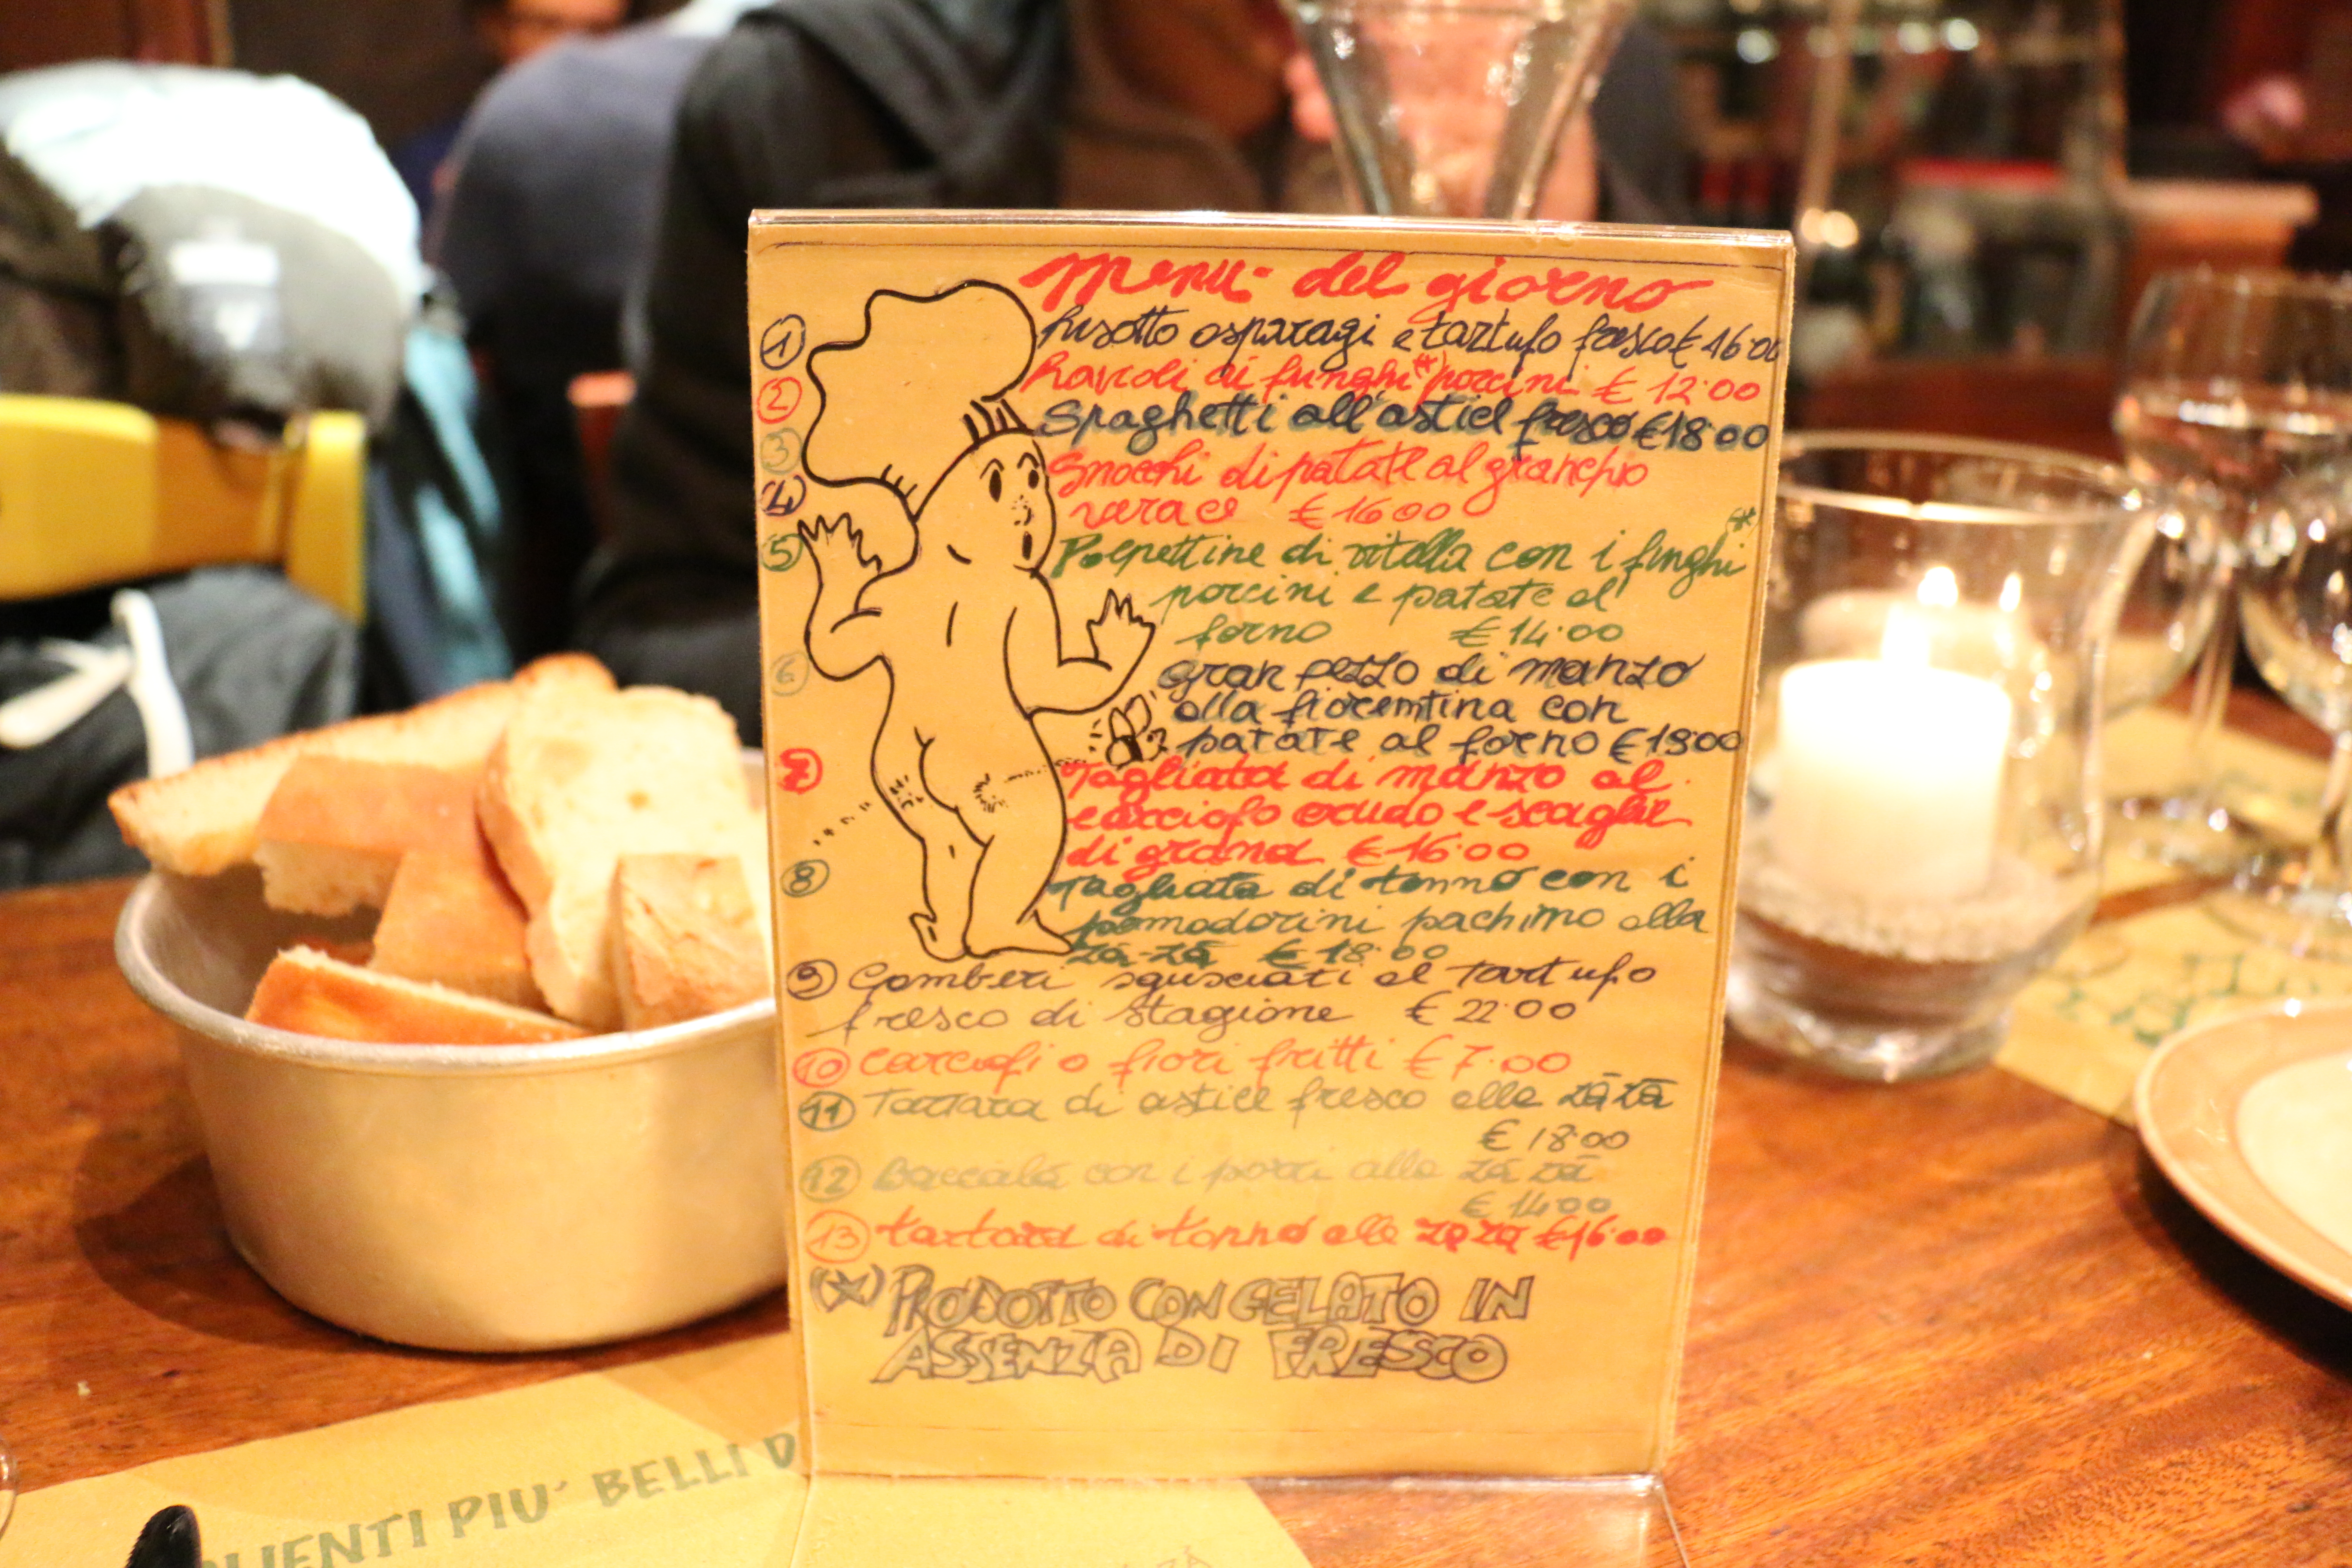 Menu del giorno
1 Risotto asparagi e tartufo fresco € 16.00
2 Ravioli di funghi (*) porcini € 12.00
3 Spaghetti all'astice fresco € 18.00
4 Gnocchi di patate al granchio
verace € 16.00
5 Polpettine di vitella con i funghi (*)
porcini e patate al
forno € 14.00
6 Gran pezzo di manzo
alla fiorentina con
patate al forno € 19.00
7 Tagliata di manzo al
carciofo crudo e scaglie
di grana € 16.00
8 Tagliata di tonno con i
pomodorini pachino alla
Zà-Zà € 18.00
9 Gamberi sgusciati al Tartufo
fresco di stagione € 22.00
10 Carciofi o fiori fritti € 7.00
11 Tartara di astice fresco alla Zà Zà
€ 18.00
12 Baccalà con i porri alla Zà Zà
€ 14.00
13 tartara di tonno alla Zà Zà € 16.00
(*) PRODOTTO CONGELATO IN
ASSENZA DI FRESCO
PIU' BELLI D